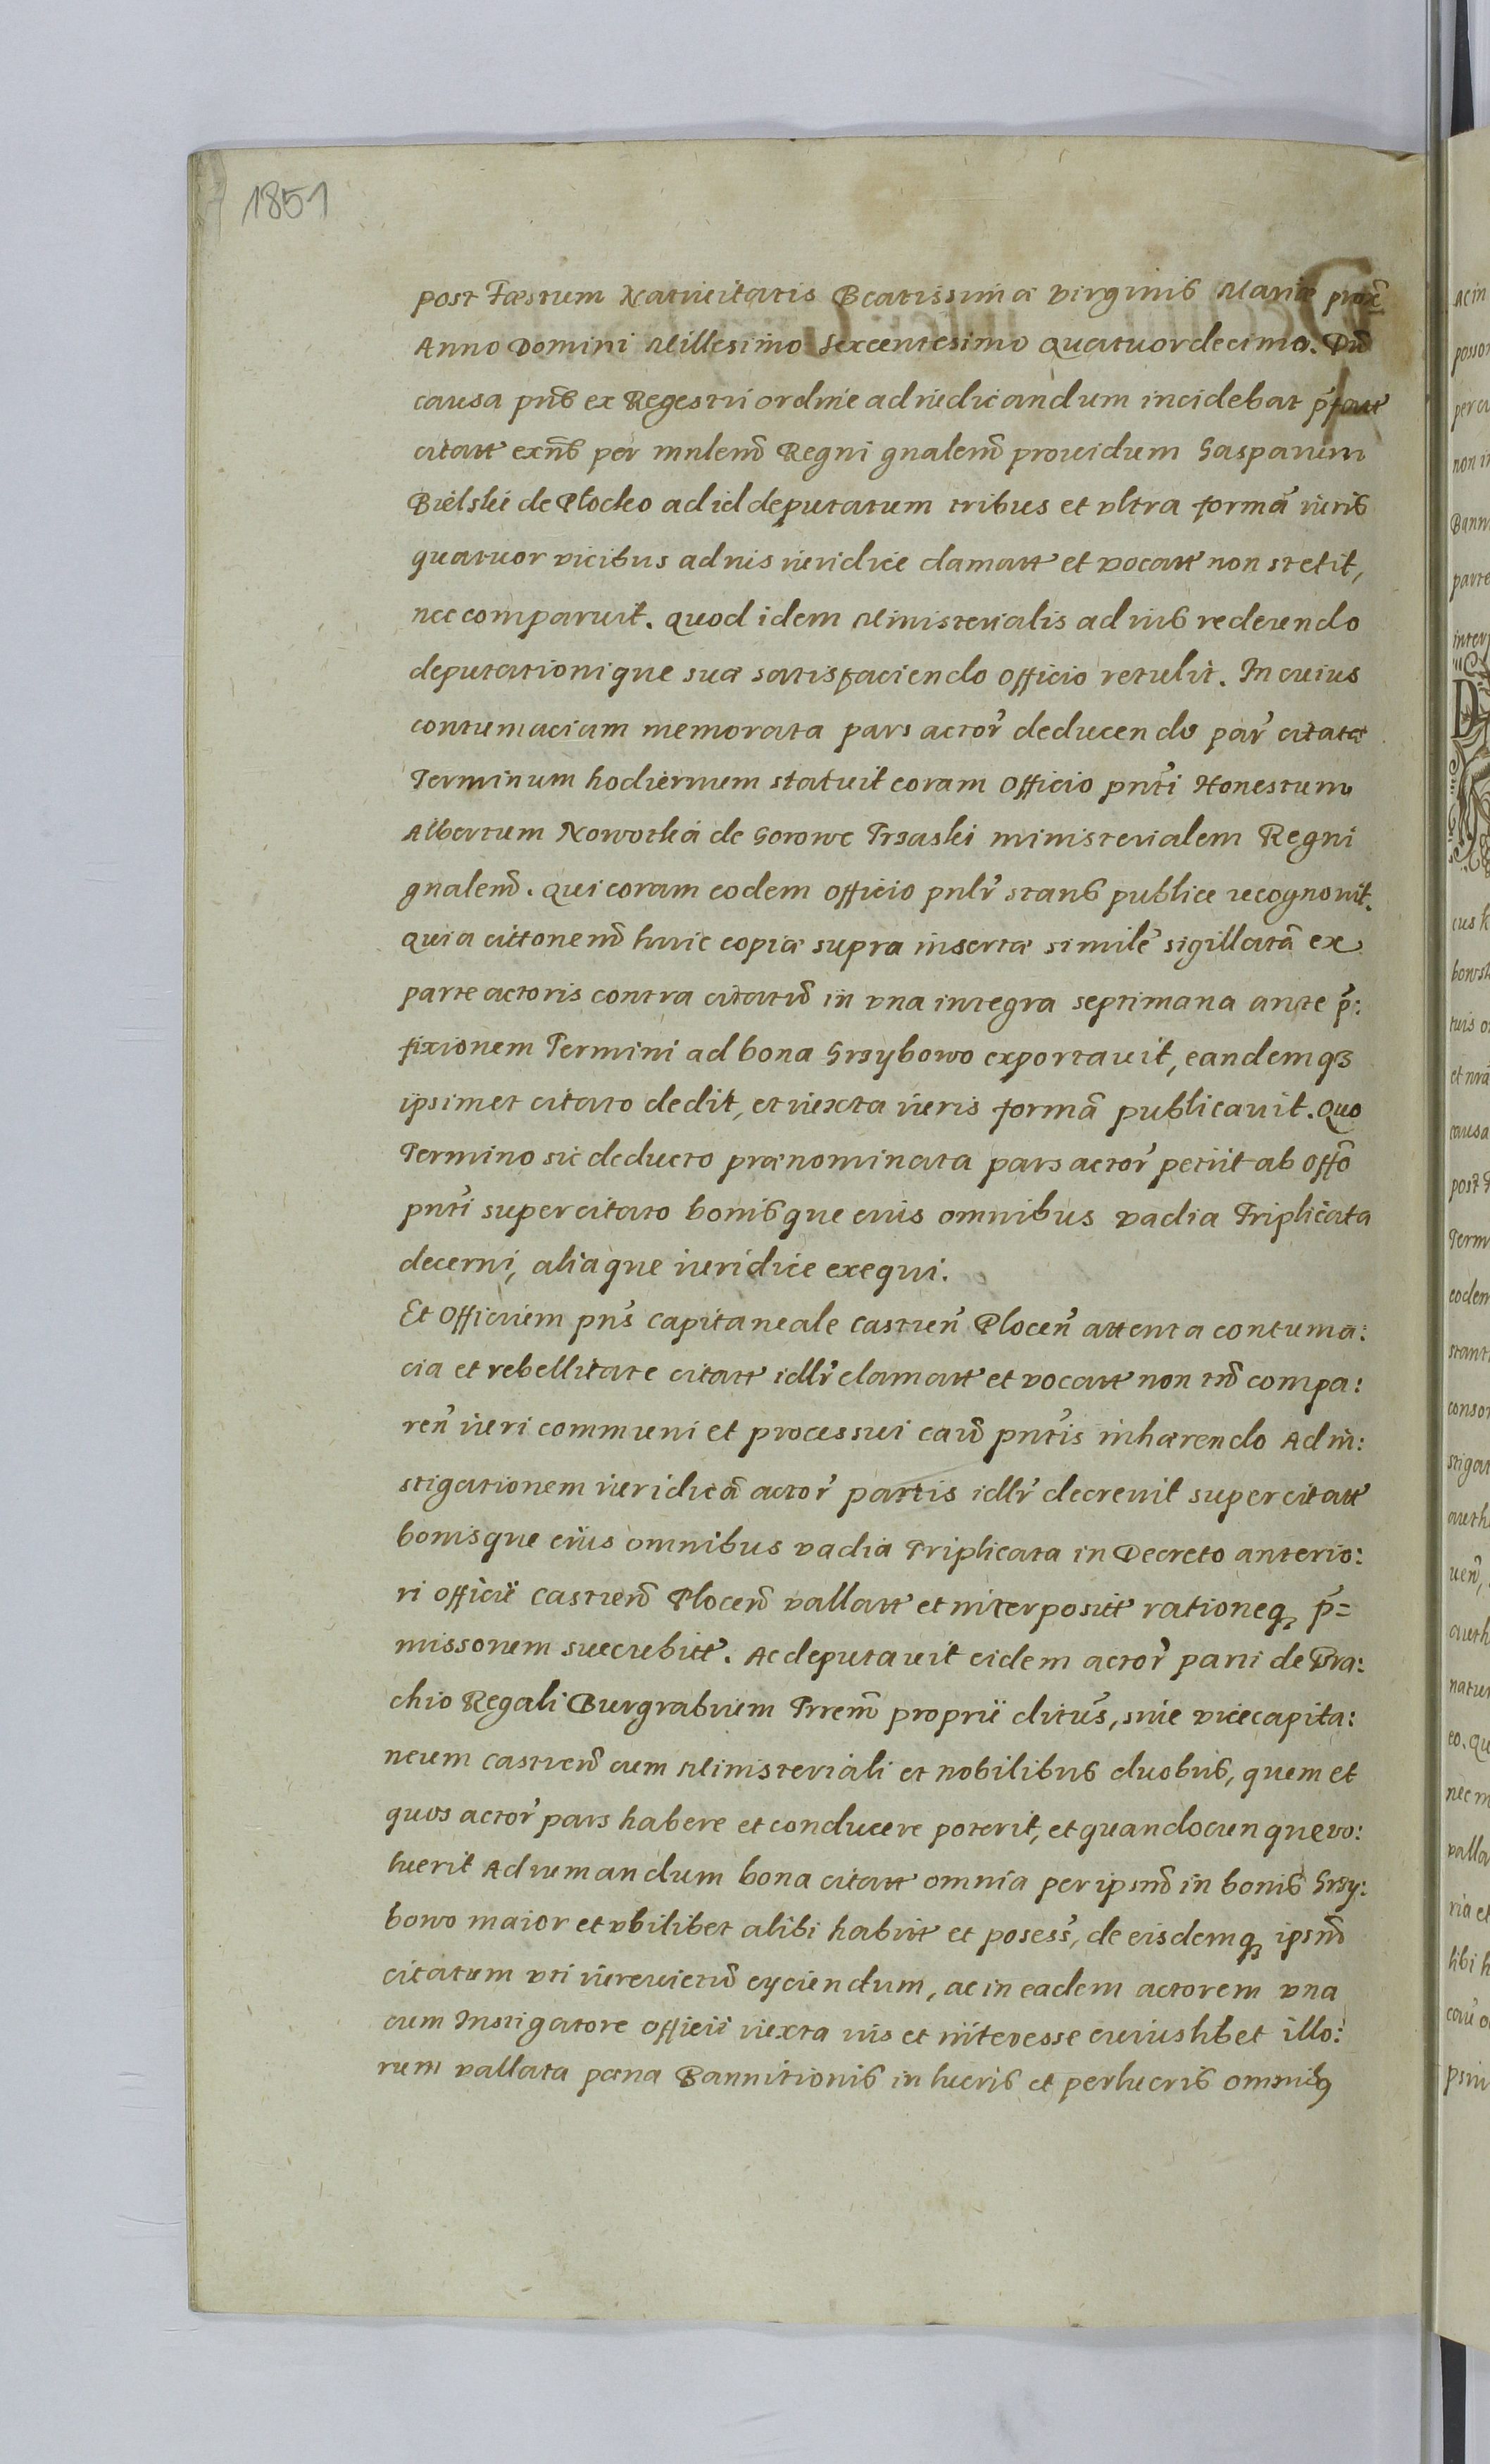 1851
post Fæstum Natiuitatis Beatissimæ Virginis Mariæ prox̃
Anno Domini Millesimo Sexcentesimo Quatuordecimo. Dũ
causa pñs ex Regestri ordine ad iudicandum incidebat p̃fatt
citatt exñs per mnlem̃ Regni gnalem̃ prouidum Gasparum
Bielski de Płocko ad id deputatum tribus et vltra formã iuris
quatuor vicibus ad ius iuridice clamatt et vocatt non stetit,
nec comparuit. Quod idem Ministerialis ad ius redeundo
deputationique suæ satisfaciendo Officio retulit. In cuius
contumaciam memorata pars actor̃ deducendo par̃ citatæ
Terminum hodiernum statuit coram Officio pnti Honestum
Albertum Nowotka de Gorowe Trzaski ministerialem Regni
gnalem̃. Qui coram eodem officio pnlr̃ stans publice recognouit.
Quia cittonem̃ huic copiæ supra insertæ similẽ sigillatã ex
parte actoris contra citatũ in vna integra septimana ante p̃:
fixionem Termini ad bona Grzybowo exportauit, eandemqz
ipsimet citato dedit, et iuxta iuris formã publicauit. Quo
Termino sic deducto prænominata pars actor̃ petiit ab Offõ
pnti super citato bonisque eius omnibus vadia Triplicata
decerni, aliaque iuridice exequi.
Et Officium pñs Capitaneale Castreñ Ploceñ attenta contuma:
cia et rebellitate citatt idlr̃ clamatt et vocatt non tm̃ compa:
reñ iuri communi et processui caũ pntis inhærendo Ad in:
stigationem iuridicã actor̃ partis idlr̃ decreuit super citatt
bonisque eius omnibus vadia Triplicata in Decreto anterio:
ri officii Castreñ Ploceñ vallatt et interposit rationeqz p̃=
missorum succubitt. Ac deputauit eidem actor̃ parti de Bra:
chio Regali Burgrabium Trrem̃ proprii ditus̃, siue vicecapita:
neum Castreñ cum Ministeriali et nobilibus duobus, quem et
quos actor̃ pars habere et conducere poterit, et quandocunque vo:
luerit Ad rumandum bona citatt omnia per ipsum̃ in bonis Grzy:
bowo maior et vbilibet alibi habitt et posess̃, de eisdemqz ipsum̃
citatum vti iureuictũ eyciendum, ac in eadem actorem vna
cum Instigatore officii iuxta ius et interesse cuiuslibet illo:
rum vallata pæna Bannitionis in lucris et perlucris omnibq